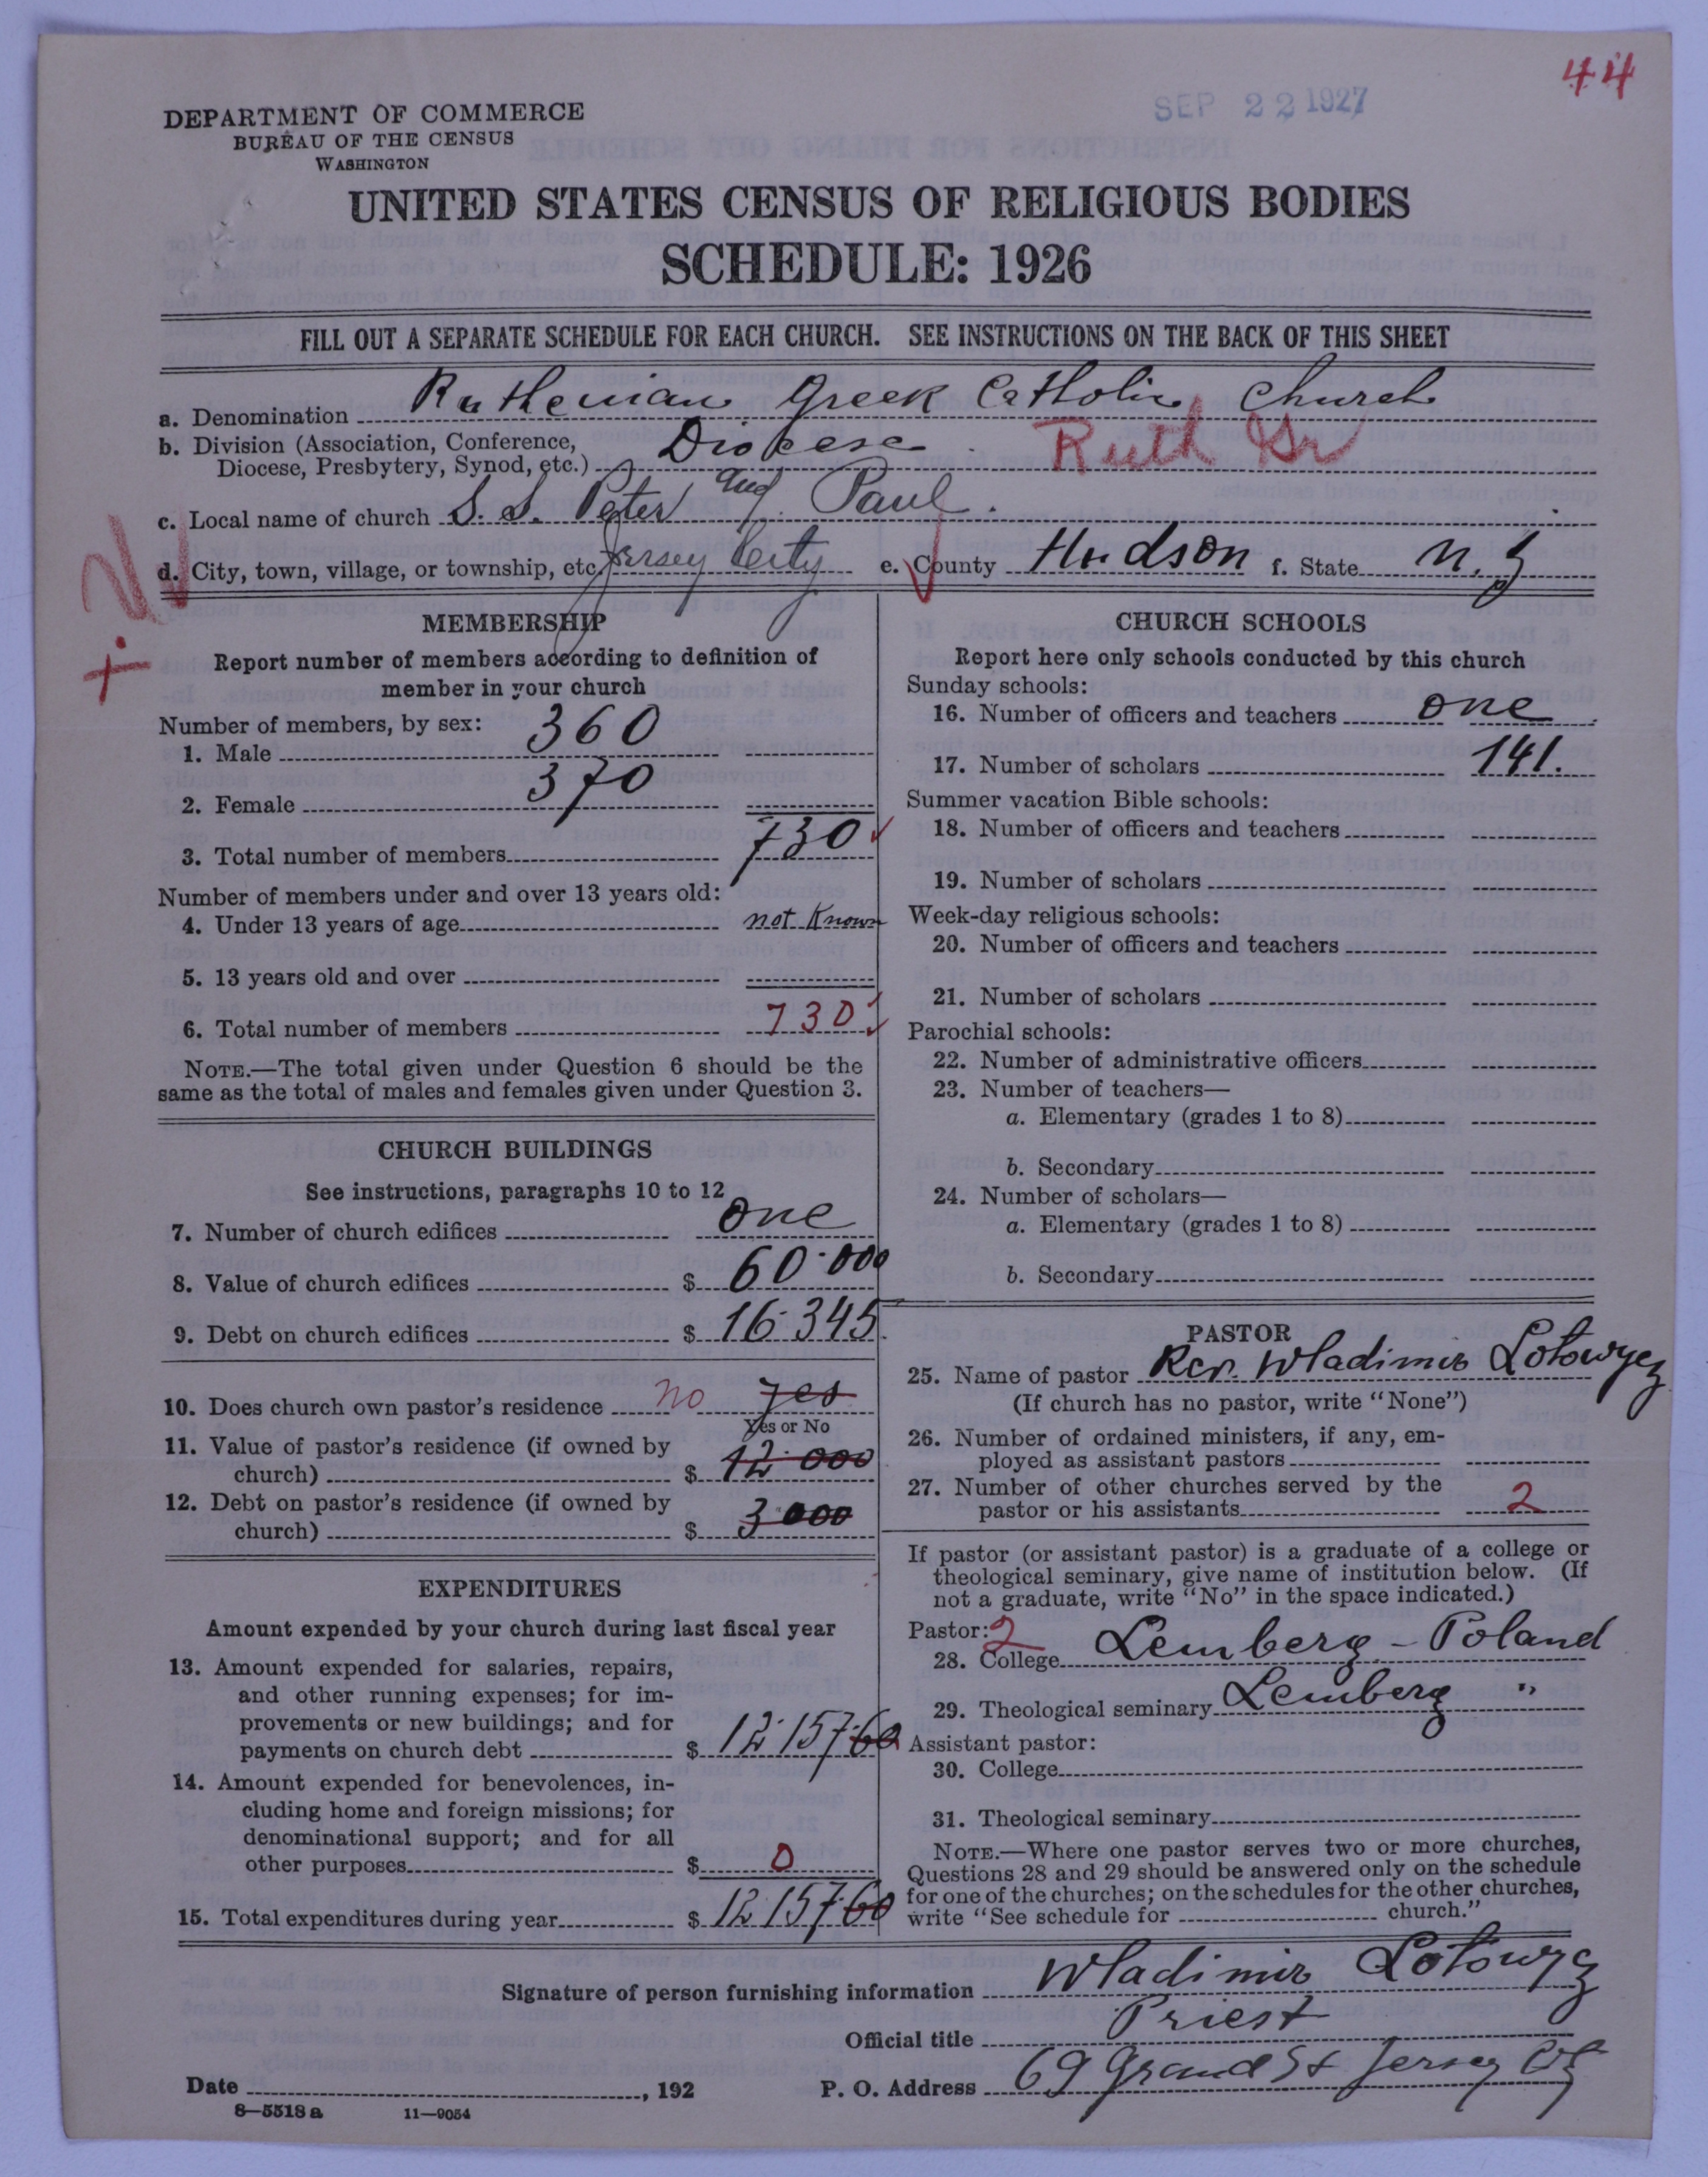 44
SEP 22 1927
DEPARTMENT OF COMMERCE
BUREAU OF THE CENSUS
WASHINGTON
UNITED STATES CENSUS OF RELIGIOUS BODIES
SCHEDULE: 1926
FILL OUT A SEPARATE SCHEDULE FOR EACH CHURCH. SEE INSTRUCTIONS ON THE BACK OF THIS SHEET
a. Denomination Ruthenian Greek Catholic Church
b. Division (Association, Conference, Diocese, Presbytery, Synod, etc.) Diocese. Ruth Gr
c. Local name of church S. S. Peter and Paul.
d. City, town, village, or township, etc. Jersey City e. County Hudson f. State N. J
MEMBERSHIP
Report number of members according to definition of
member in your church
Number of members, by sex:
1. Male 360
2. Female 370
3. Total number of members 730
Number of members under and over 13 years old:
4. Under 13 years of age not Known
5. 13 years old and over
6. Total number of members 730
NOTE.—The total given under Question 6 should be the
same as the total of males and females given under Question 3.
CHURCH BUILDINGS
See instructions, paragraphs 10 to 12
7. Number of church edifices one
8. Value of church edifices $ 60.000
9. Debt on church edifices $ 16.345
10. Does church own pastor's residence no yes
Yes or No
11. Value of pastor's residence (if owned by
church) $ 12.000
12. Debt on pastor's residence (if owned by
church) $ 3000
EXPENDITURES
Amount expended by your church during last fiscal year
13. Amount expended for salaries, repairs,
and other running expenses; for im-
provements or new buildings; and for
payments on church debt $ 12.157.60
14. Amount expended for benevolences, in-
cluding home and foreign missions; for
denominational support; and for all
other purposes $ 0
15. Total expenditures during year $ 12157.60
CHURCH SCHOOLS
Report here only schools conducted by this church
Sunday schools:
16. Number of officers and teachers one
17. Number of scholars 141.
Summer vacation Bible schools:
18. Number of officers and teachers
19. Number of scholars
Week-day religious schools:
20. Number of officers and teachers
21. Number of scholars
Parochial schools:
22. Number of administrative officers
23. Number of teachers—
a. Elementary (grades 1 to 8)
b. Secondary
24. Number of scholars—
a. Elementary (grades 1 to 8)
b. Secondary
PASTOR
25. Name of pastor Rev. Wladimir Lotowycz
(If church has no pastor, write "None")
26. Number of ordained ministers, if any, em-
ployed as assistant pastors
27. Number of other churches served by the
pastor or his assistants 2
If pastor (or assistant pastor) is a graduate of a college or
theological seminary, give name of institution below. (If
not a graduate, write "No" in the space indicated.)
Pastor: 2
28. College Lemberg - Poland
29. Theological seminary Lemberg "
Assistant pastor:
30. College
31. Theological seminary
NOTE.—Where one pastor serves two or more churches,
Questions 28 and 29 should be answered only on the schedule
for one of the churches; on the schedules for the other churches,
write "See schedule for church."
Signature of person furnishing information Wladimir Lotowycz
Official title Priest
Date , 192 P. O. Address 69 Grand St Jersey City
8—5518 a 11—9054